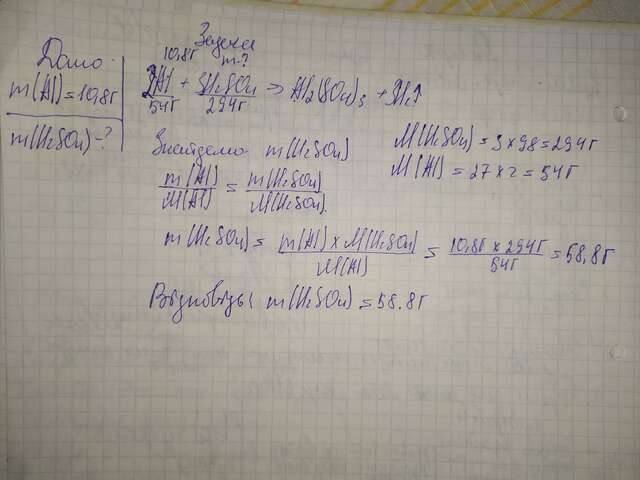 Задача
Дано:
m(Al)=10,8г
m(H₂SO₄)-?
10,8г m-?
2Al + 3H₂SO₄ => Al₂(SO₄)₃ + 3H₂↑
54г 294г
Знайдемо m(H₂SO₄)
M(H₂SO₄) = 3×98=294г
M(Al) = 27×2=54г
m(Al)/M(Al) = m(H₂SO₄)/M(H₂SO₄)
m(H₂SO₄) = m(Al)×M(H₂SO₄)/M(Al) = 10,8г×294г/54г =58,8г
Відповідь: m(H₂SO₄)=58.8г